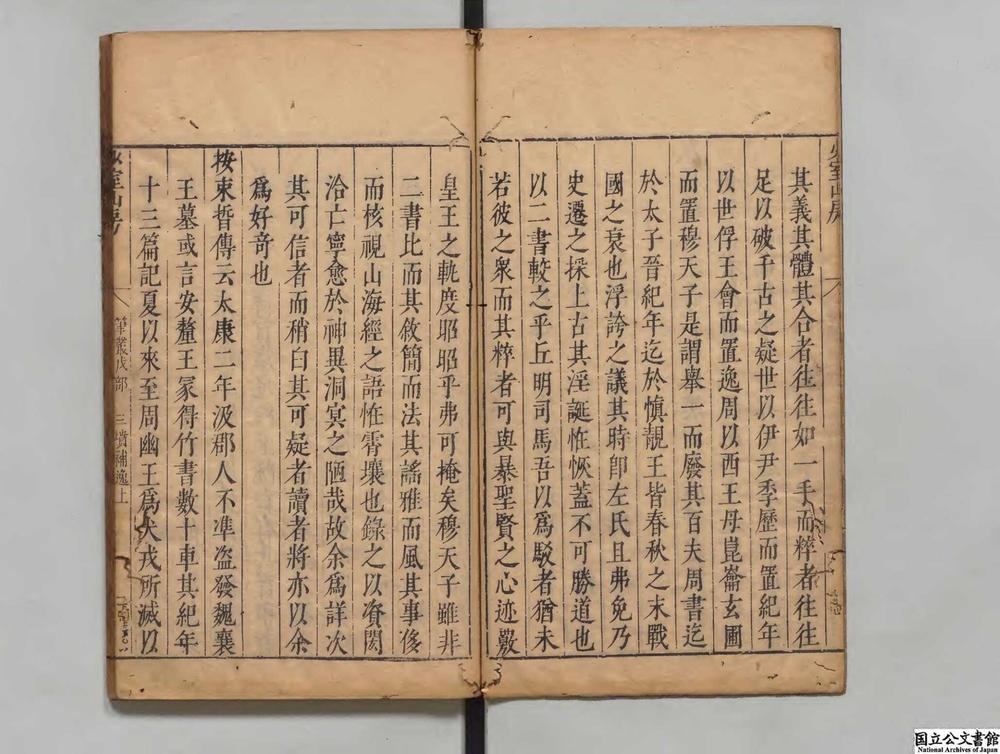 其義其體其合者往往如一手而粹者往往
足以破千古之疑世以伊尹季歷而置紀年
以世俘王會而置逸周以西王母崑崙玄圃
而置穆天子是謂舉一而廢其百夫周書迄
於太子晉紀年迄於慎靚王皆春秋之末戰
國之衰也浮誇之議其時卽左氏且弗免乃
史遷之採上古其淫誕恠恢蓋不可勝道也
以二書較之乎丘明司馬吾以爲駁者猶未
若彼之衆而其粹者可與暴聖賢之心迹覈
皇王之軌度耶耶乎弗可掩矣穆天子雖非
二書比而其敘簡而法其謠雅而風其事侈
而核視山海經之語恠霄壤也錄之以資閎
洽亡寧愈於神異洞冥之陋哉故余爲詳次
其可信者而稍白其可疑者讀者將亦以余
爲好竒也
按束晳傳云太康二年汲郡人不凖盗發魏襄
王墓或言安釐王冢得竹書數十車其紀年
十三篇記夏以來至周幽王爲犬戎所滅以
少室山房
筆叢戊部 三墳補逸上
国立公文書館
National Archives of Japan